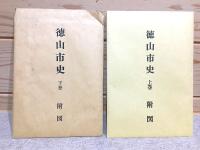 徳山市史
上巻
附図
徳山市史
下巻
附図